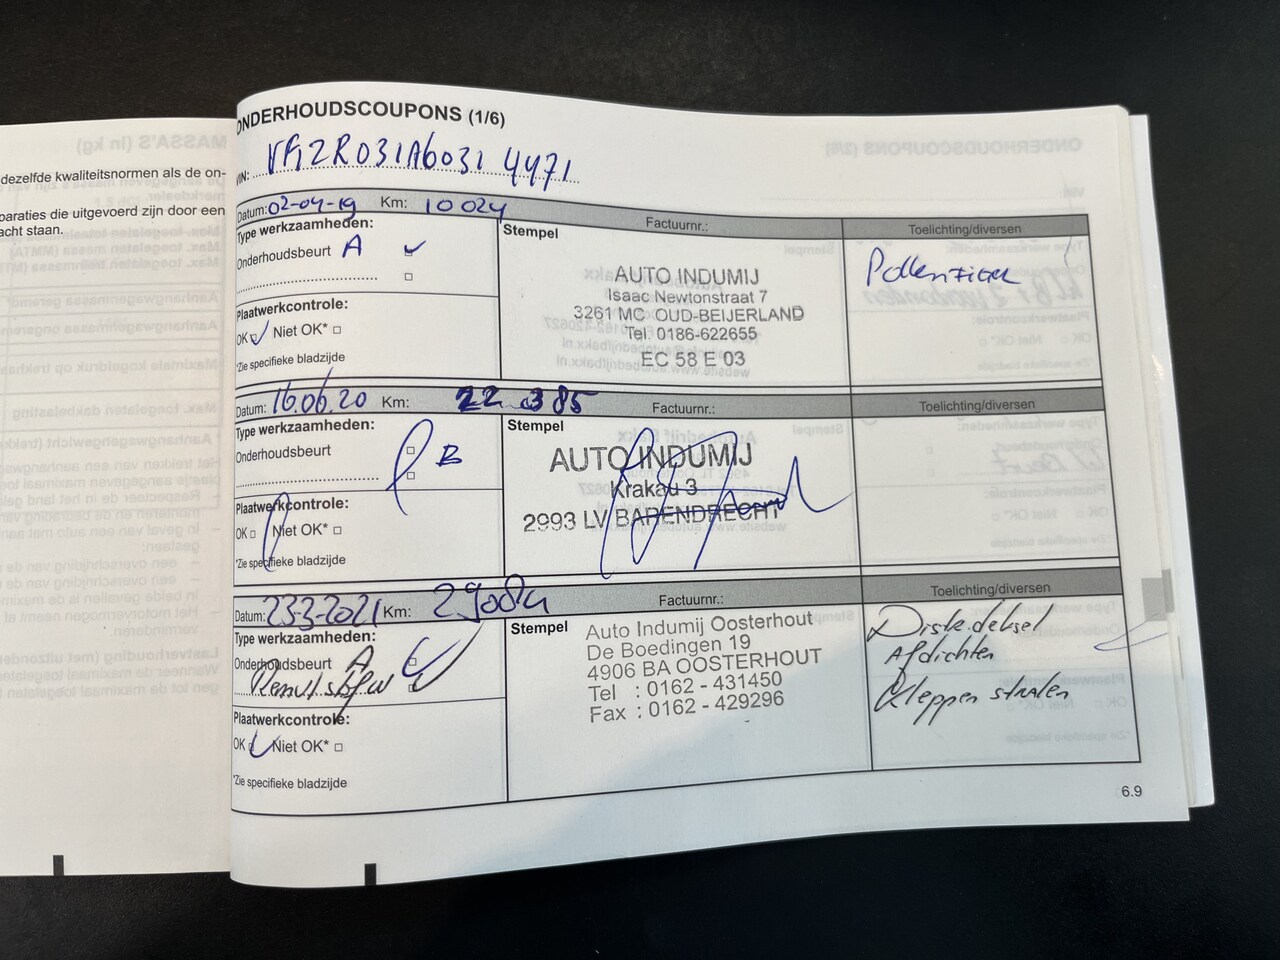 dezelfde kwaliteitsnormen als de on-
paraties die uitgevoerd zijn door een
acht staan.
ONDERHOUDSCOUPONS (1/6)
VIN:
Datum: 02-04-19 Km: 10024 Factuurnr.: Toelichting/diversen
Type werkzaamheden:
Onderhoudsbeurt A
Plaatwerkcontrole:
OK Niet OK*
*Zie specifieke bladzijde
Stempel
AUTO INDUMIJ
Isaac Newtonstraat 7
3261 MC OUD-BEIJERLAND
Tel. 0186-622655
EC 58 E 03
Datum: 16.06.20 Km: 22 385 Factuurnr.: Toelichting/diversen
Type werkzaamheden:
Onderhoudsbeurt B
Plaatwerkcontrole:
OK Niet OK*
*Zie specifieke bladzijde
Stempel
AUTO INDUMIJ
Krakau 3
2993 LV BARENDRECHT
Datum: 23-2-2021 Km: 29084 Factuurnr.: Toelichting/diversen
Type werkzaamheden:
Onderhoudsbeurt A
Plaatwerkcontrole:
OK Niet OK*
*Zie specifieke bladzijde
Stempel
Auto Indumij Oosterhout
De Boedingen 19
4906 BA OOSTERHOUT
Tel : 0162 - 431450
Fax : 0162 - 429296
Afdichten
kleppen stralen
6.9